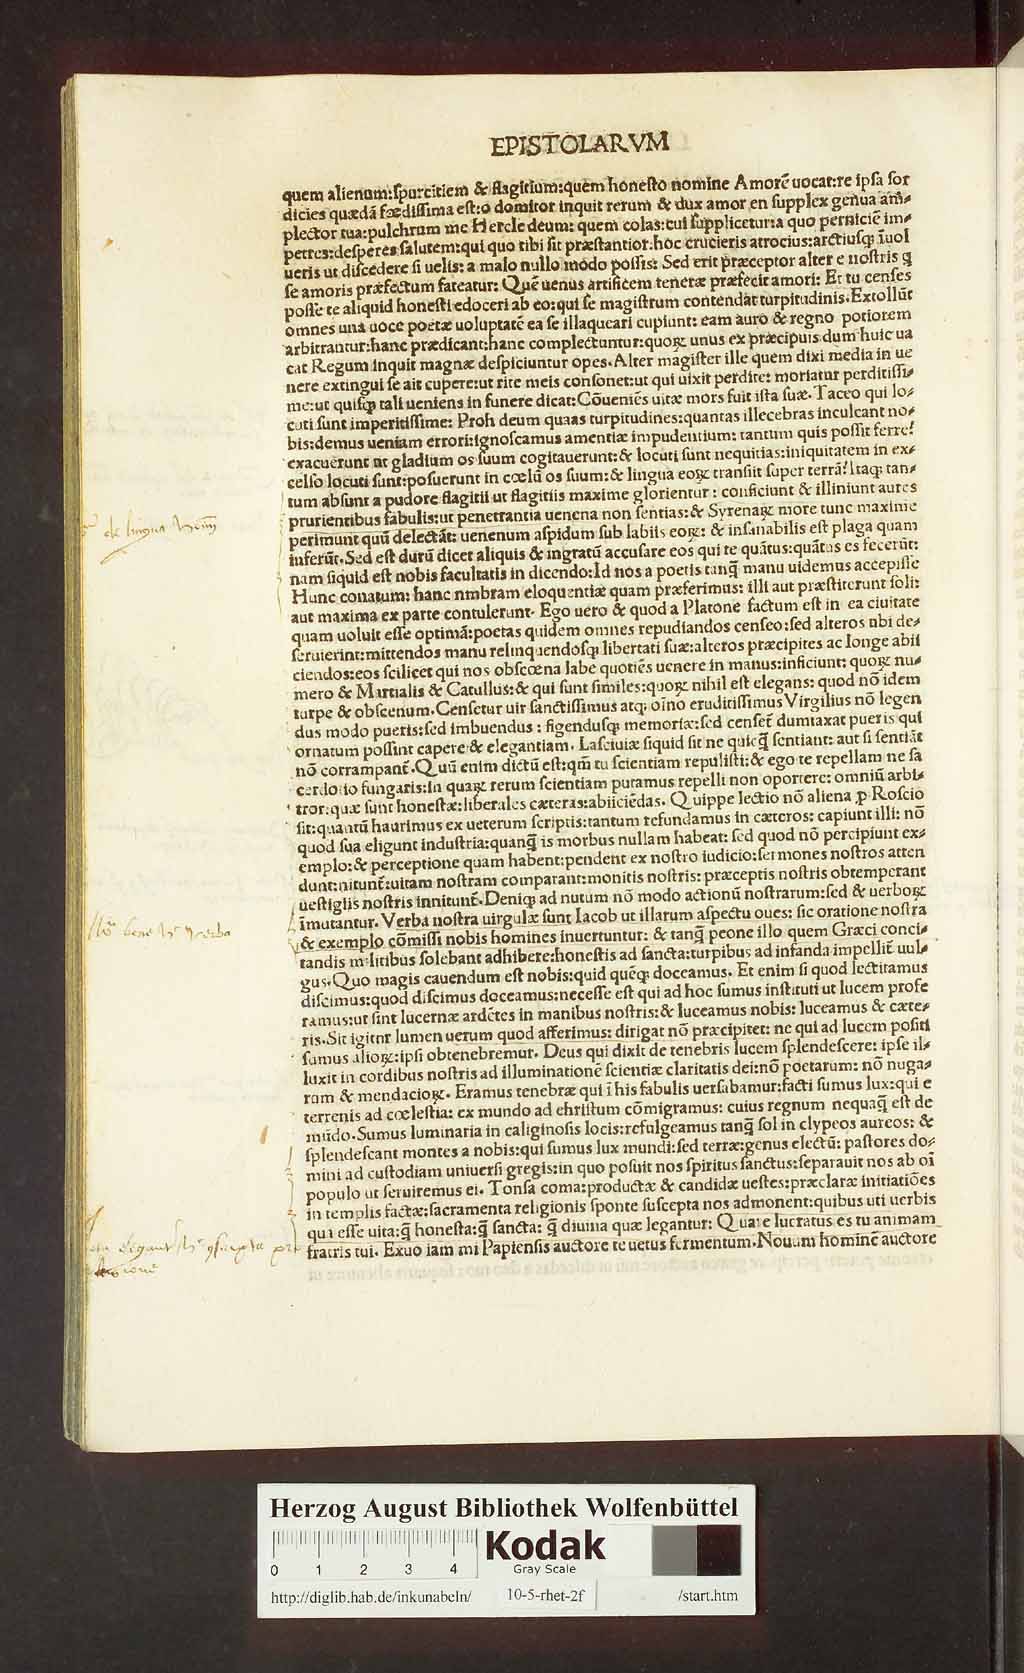 EPISTOLARVM
quem alienum:spurcitiem & flagitium:quem honesto nomine Amorē uocat:re ipsa sor
dicies quædā fœdissima est:o domitor inquit rerum & dux amor en supplex genua am-
plector tua:pulchrum me Hercle deum: quem colas:cui suppliceturia quo perniciē im-
petres:desperes salutem:qui quo tibi sit præstantior:hoc crucieris atrocius:arctiusq; īuol
ueris ut discedere si uelis: a malo nullo modo possis: Sed erit præceptor alter e nostris q
se amoris præfectum fateatur: Quē uenus artificem teneræ præfecit amori: Et tu censes
posse te aliquid honesti edoceri ab eo:qui se magistrum contendat turpitudinis.Extollūt
omnes una uoce poetæ uoluptatē ea se illaqueari cupiunt: eam auro & regno potiorem
arbitrantur:hanc prædicant:hanc complectuntur:quoꝝ unus ex præcipuis dum huic ua
cat Regum inquit magnæ despiciuntur opes.Alter magister ille quem dixi media in ue
nere extingui se ait cupere:ut rite meis consonet:ut qui uixit perdite: moriatur perditissi-
me:ut quisq; tali ueniens in funere dicat:Cōueniēs uitæ mors fuit ista suæ.Taceo qui lo-
cuti sunt imperitissime: Proh deum quaas turpitudines:quantas illecebras inculcant no-
bis:demus ueniam errori:ignoscamus amentiæ impudentium: tantum quis possit ferre?
exacuerunt ut gladium os suum cogitauerunt:& locuti sunt nequitias:iniquitatem in ex-
celso locuti sunt:posuerunt in cœlū os suum:& lingua eoꝝ transiit super terrā! Itaq; tan-
tum absunt a pudore flagitii ut flagitiis maxime glorientur : conficiunt & illiniunt aures
prurientibus fabulis:ut penetrantia uenena non sentias:& Syrenaꝝ more tunc maxime
perimunt quū delectāt: uenenum aspidum sub labiis eoꝝ: & insanabilis est plaga quam
inferūt.Sed est durū dicet aliquis & ingratū accusare eos qui te quātus:quātus es fecerūt:
nam siquid est nobis facultatis in dicendo:Id nos a poetis tanq̄ manu uidemus accepisse
Hunc conatum: hanc nmbram eloquentiæ quam præferimus: illi aut præstiterunt soli:
aut maxima ex parte contulerunt. Ego uero & quod a Platone factum est in ea ciuitate
quam uoluit esse optimā:poetas quidem omnes repudiandos censeo:sed alteros ubi de-
seruierint:mittendos manu relinquendosq; libertati suæ:alteros præcipites ac longe abii
ciendos:eos scilicet qui nos obscœna labe quotiēs uenere in manus:inficiunt: quoꝝ nu-
mero & Martialis & Catullus:& qui sunt similes:quoꝝ nihil est elegans: quod nō idem
turpe & obscenum.Censetur uir sanctissimus atq; oīno eruditissimus Virgilius nō legen
dus modo pueris:sed imbuendus : figendusq; memoriæ:sed censet̄ dumtaxat pueris qui
ornatum possint capere & elegantiam. Lasciuiæ siquid sit ne quicq̄ sentiant: aut si sentiāt
nō corrampant̄.Quū enim dictū est:qm̄ tu scientiam repulisti:& ego te repellam ne sa
cerdotio fungaris:In quaꝝ rerum scientiam putamus repelli non oportere: omniū arbi-
tror:quæ sunt honestæ:liberales cæteras:abiiciēdas. Quippe lectio nō aliena ꝓ Roscio
sit:quantū haurimus ex ueterum scriptis:tantum refundamus in cæteros: capiunt illi: nō
quod sua eligunt industria:quanq̄ is morbus nullam habeat: sed quod nō percipiunt ex-
emplo:& perceptione quam habent:pendent ex nostro iudicio:sermones nostros atten
dunt:nitunt̄:uitam nostram comparant:monitis nostris: præceptis nostris obtemperant
uestigiis nostris innitunt̄.Deniq; ad nutum nō modo actionū nostrarum:sed & uerboꝝ
īmutantur. Verba nostra uirgulæ sunt Iacob ut illarum aspectu oues: sic oratione nostra
& exemplo cōmissi nobis homines inuertuntur: & tanq̄ peone illo quem Græci conci-
tandis militibus solebant adhibere:honestis ad sancta:turpibus ad infanda impellit̄ uul-
gus.Quo magis cauendum est nobis:quid quēq; doceamus. Et enim si quod lectitamus
discimus:quod discimus doceamus:necesse est qui ad hoc sumus instituti ut lucem profe
ramus:ut sint lucernæ ardētes in manibus nostris:& luceamus nobis: luceamus & cæte-
ris.Sit igitnr lumen uerum quod afferimus: dirigat nō præcipitet: ne qui ad lucem positi
sumus alioꝝ:ipsi obtenebremur. Deus qui dixit de tenebris lucem splendescere: ipse il-
luxit in cordibus nostris ad illuminationē scientiæ claritatis dei:nō poetarum: nō nuga-
rum & mendacioꝝ. Eramus tenebræ qui ī his fabulis uersabamur:facti sumus lux:qui e
terrenis ad cœlestia: ex mundo ad christum cōmigramus: cuius regnum nequaq̄ est de
mūdo.Sumus luminaria in caliginosis locis:refulgeamus tanq̄ sol in clypeos aureos: &
splendescant montes a nobis:qui sumus lux mundi:sed terræ:genus electū: pastores do-
mini ad custodiam uniuersi gregis:in quo posuit nos spiritus sanctus:separauit nos ab oī
populo ut seruiremus ei. Tonsa coma:productæ & candidæ uestes:præclaræ initiatiōes
in templis factæ:sacramenta religionis sponte suscepta nos admonent:quibus uti uerbis
qui esse uita:q̄ honesta:q̄ sancta: q̄ diuina quæ legantur: Quare lucratus es tu animam
fratris tui. Exuo iam mi Papiensis auctore te uetus fermentum.Nouum hominē auctore
de lingua
bene
verba
Herzog August Bibliothek Wolfenbüttel
0 1 2 3 4
Kodak
Gray Scale
http://diglib.hab.de/inkunabeln/ 10-5-rhet-2f /start.htm